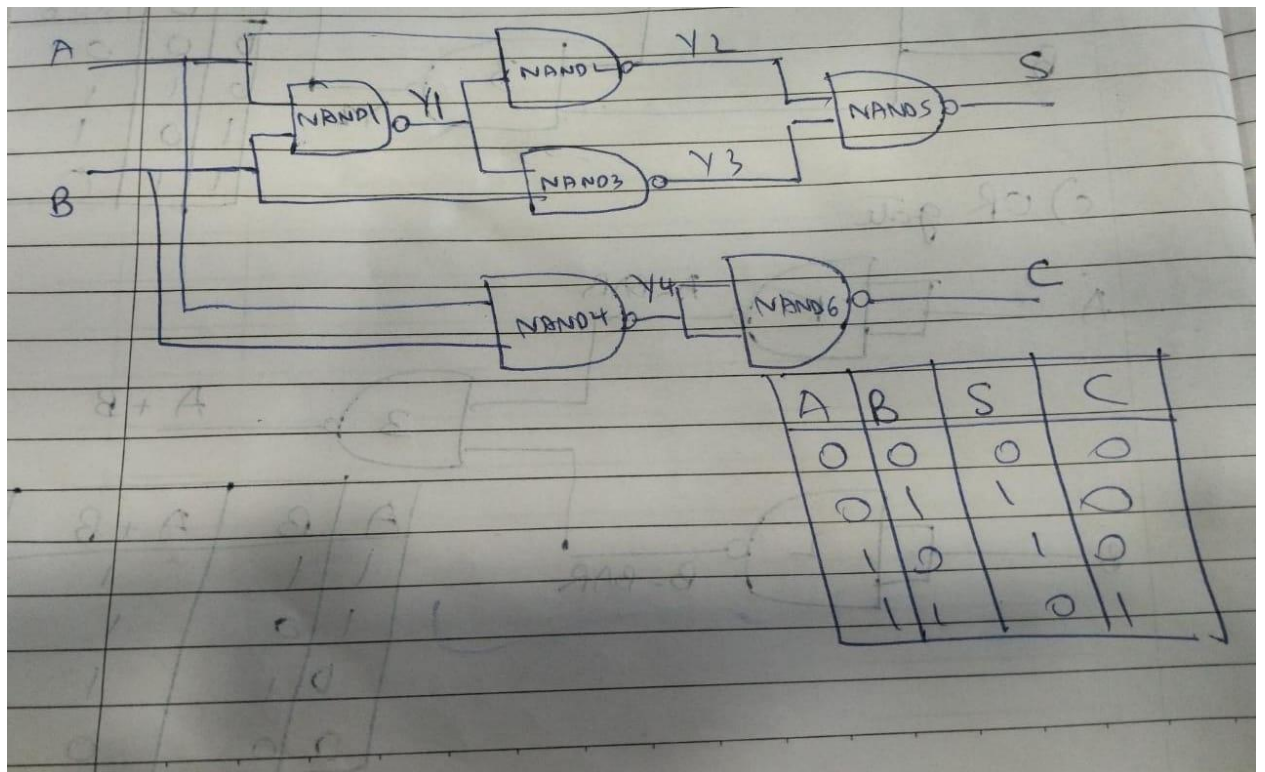 A
B
NAND1
Y1
NAND2
Y2
NAND3
Y3
NAND5
S
NAND4
Y4
NAND6
C
A B S C
0 0 0 0
0 1 1 0
1 0 1 0
1 1 0 1